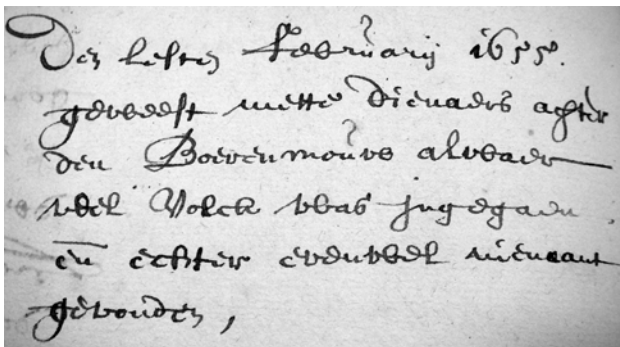 Den lesten februarij 1655.
geweest mette dienaers achter
den Boerenmouws alwaer
wel Volck was Ingegaen.
en̄ echter evenwel niemant
gevonden,